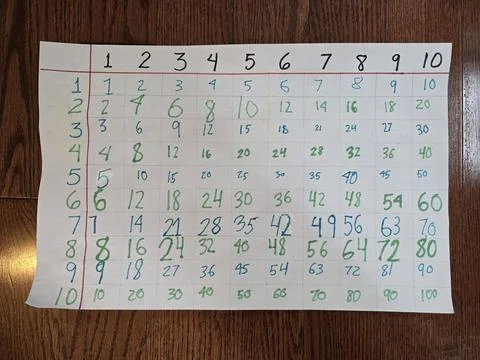 1 2 3 4 5 6 7 8 9 10
1 1 2 3 4 5 6 7 8 9 10
2 2 4 6 8 10 12 14 16 18 20
3 3 6 9 12 15 18 21 24 27 30
4 4 8 12 16 20 24 28 32 36 40
5 5 10 15 20 25 30 35 40 45 50
6 6 12 18 24 30 36 42 48 54 60
7 7 14 21 28 35 42 49 56 63 70
8 8 16 24 32 40 48 56 64 72 80
9 9 18 27 36 45 54 63 72 81 90
10 10 20 30 40 50 60 70 80 90 100